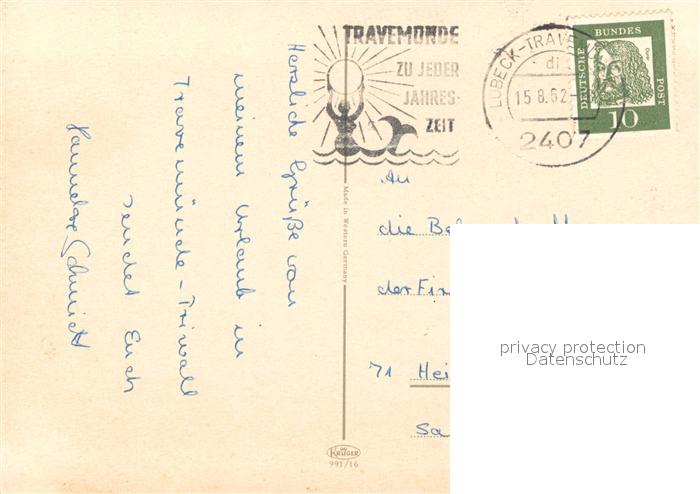 TRAVEMÜNDE
ZU JEDER
JAHRES-
ZEIT
LÜBECK-TRAVEM
15.8.62
2407
DEUTSCHE BUNDES POST
Dürer
10
Herzliche Grüße von
meinem Urlaub in
Travemünde-Priwall
sendet Euch
Hannelore Schmidt
Made in Western Germany
An
die Bel
der Fir
71 Hei
Sa
KRÜGER
991/16
privacy protection
Datenschutz